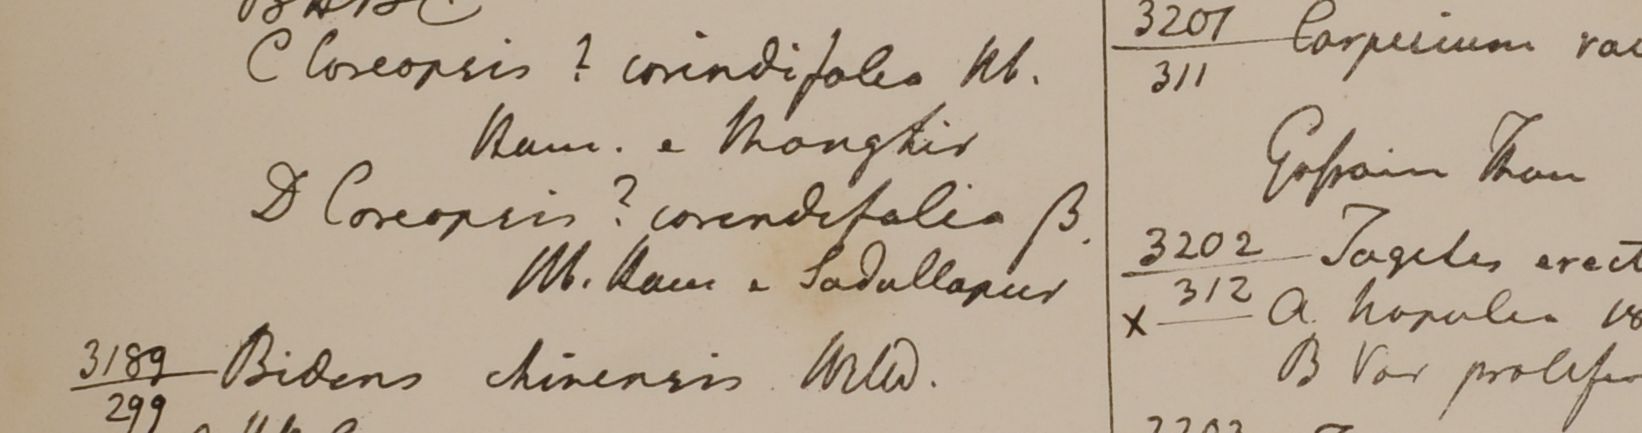 C Coreopsis ? corindifolia Hb.
Ham. e Monghir
D Coreopsis ? corindifolia β.
Hb. Ham e Sadullapur
3189 Bidens chinensis Willd.
299
3201 Carpesium rac
311
Gossain Than
3202 Tagetes erect
312 A Napalia
x
B Var prolifer
3203